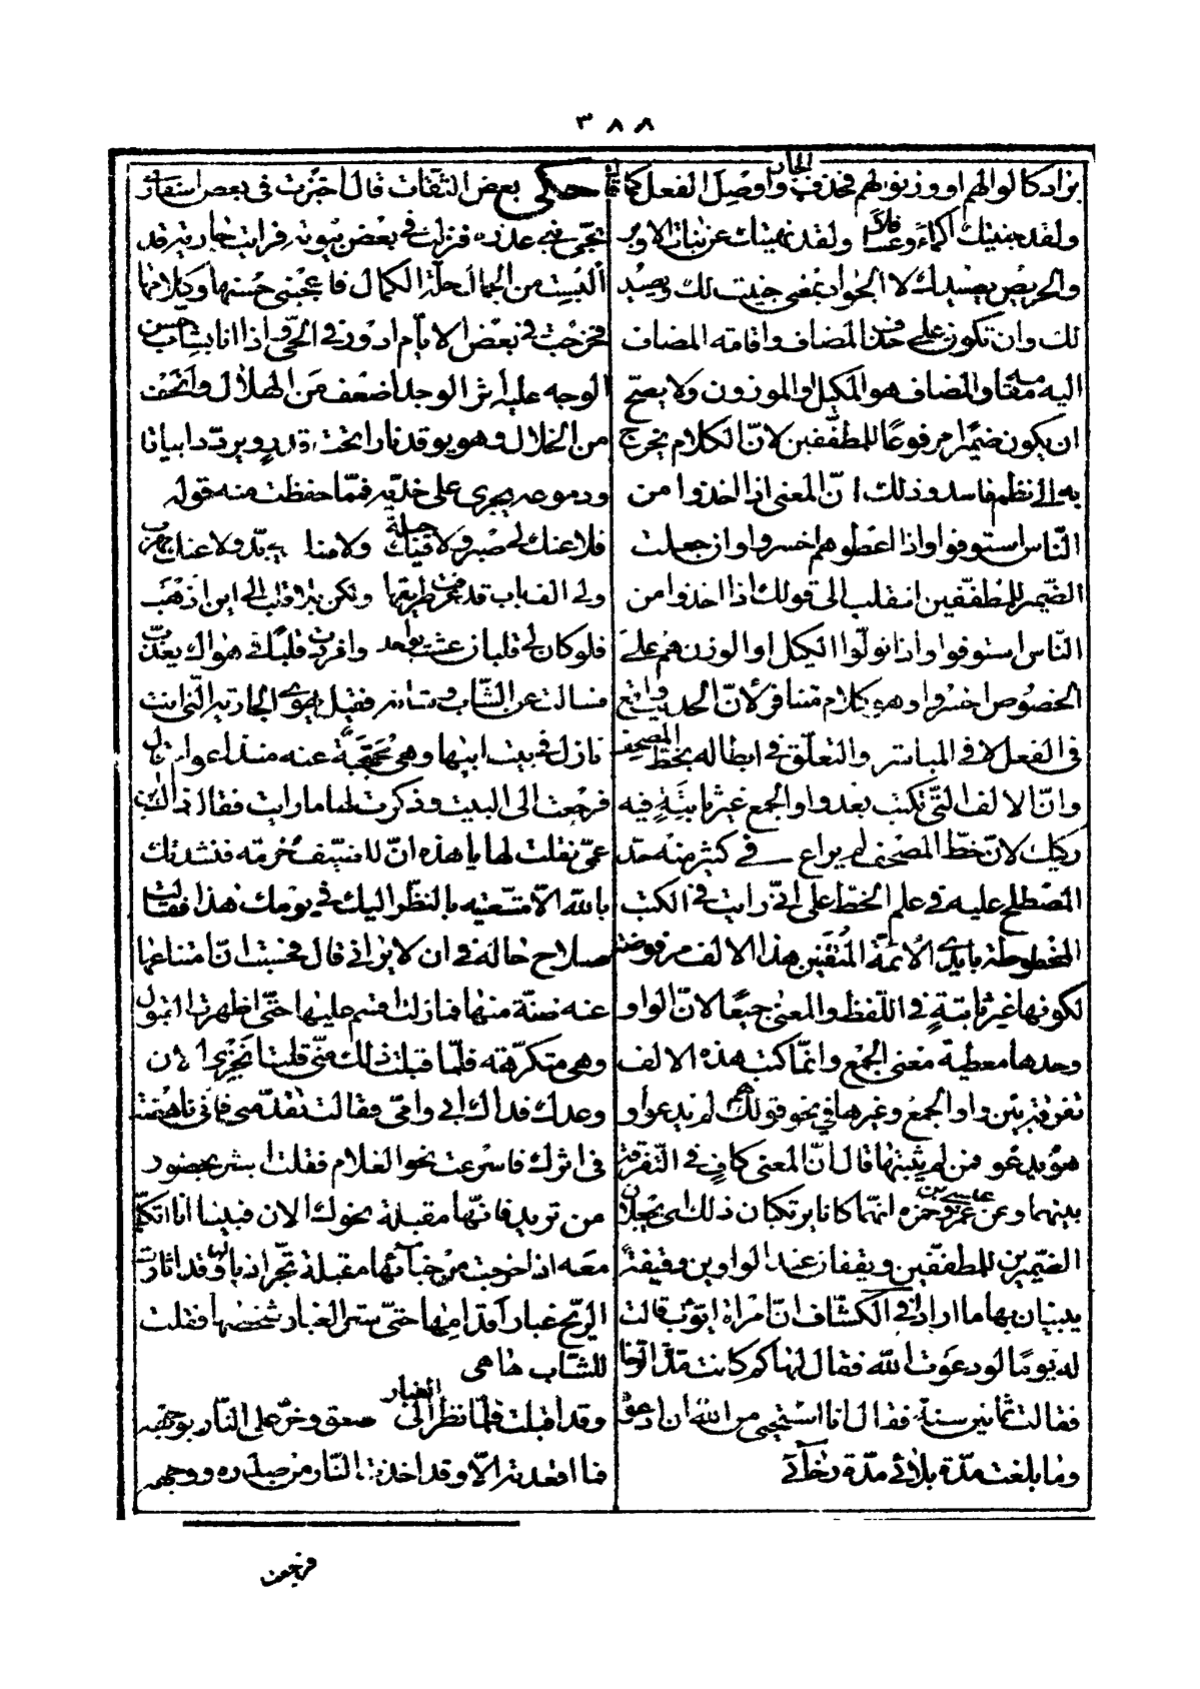 ٣٨٨
يراد كالوا لهم او وزنوا لهم فحذف الجار واوصل الفعل كما قال
ولقد جنيتك اكماء وعساقلا ولقد نهيتك عن بنات الاوبر
والحريص يصيدك لا الجواد بمعنى جنيت لك ويصيد
لك وان تكون على حذف المضاف واقامة المضاف
اليه مقامه والمضاف هو المكيل او الموزون ولا يصح
ان يكون ضميرا مرفوعًا للمطففين لانّ الكلام يخرج
به الى نظم فاسد وذلك انّ المعنى اذا اخذوا من
النّاس استوفوا واذا اعطوهم اخسروا وان جعلت
الضّمير للمطفّفين انقلب الى قولك اذا اخذوا من
النّاس استوفوا واذا تولّوا الكيل او الوزن هم على
الخصوص اخسروا وهو كلام متنافر لانّ الحديث واقع
فى الفعل لا فى المباشر والتعلّق فى ابطاله بخط المصحف
وانّ الالف التّى تكتب بعد واو الجمع غير ثابتة فيه
ركيك لانّ خطّ المصحف لم يراع فى كثير منه حدّ
المصطلح عليه فى علم الخطّ على انّى رايت فى الكتب
المخطوطة بايدى الائمّة المتقنين هذا الالف مرفوضة
لكونها غير ثابتةٍ فى اللّفظ والمعنى جميعًا لانّ الواو
وحدها معطية معنى الجمع وانّما كتب هذه الالف
تفرقة بين واو الجمع وغيرها فى نحو قولك هم لم يدعوا و
هو يدعو فمن لم يثبتها قال انّ المعنى كافٍ فى التّفرقة
بينهما وعن عيسى بن عمر وحمزه انّهما كانا يرتكبان ذلك اى يجعلان
الضّميرين للمطفّفين ويقفان عند الواوين وقيفةً
يبينان بها ما اراد فى الكشّاف انّ امراة ايّوب قالت
له يومًا لو دعوت اللّه فقال لها كم كانت مدّة الرّخا
فقالت ثمانين سنة فقال انا استحيى من اللّه ان ادعوه
وما بلغت مدّة بلائى مدّة رخآئى
حكى بعض الثّقات قال اجتزت فى بعض اسفارى
بحىّ بنى عذره فنزلت فى بعض بيوته فرايت جارية قد
اُلبست من الجمال حلّة الكمال فاعجبنى حسنها وكلامها
فخرجت فى بعض الايّام ادور فى الحىّ واذا انا بشابّ حسن
الوجه عليه اثر الوجد اضعف من الهلال وانحف
من الخلال وهو يوقد نارا تحت قدرٍ ويردّد ابياتا
ودموعه يجرى على خدّيه فممّا حفظت منه قوله
فلا عنك لى صبر ولا فيك حيلة ولا منك لى بدّ ولا عنك مهرب
ولى الف باب قد عرفت طريقها ولكن بلا قلب الى اين اذهب
فلو كان لى قلبان عشت بواحد وافردت قلبًا فى هواك يعذّب
فسالت عن الشّاب وشانه فقيل يهوى الجارية الّتى انت
نازل فى بيت ابيها وهى محتجبة عنه منذ اعوام قال
فرجعت الى البيت وذكرت لها ما رايت فقالت ذاك ابن
عمّى فقلت لها يا هذه انّ للضّيف حُرمة فنشدتك
باللّه الّا متّعتيه بالنّظر اليك فى يومك هذا فقالت
صلاح حاله فى ان لا يرانى قال فحسبت انّ امتناعها
عنه ضنّة منها فمازلت اقسم عليها حتّى اظهرت القبول
وهى متكرّهة فلمّا قبلت ذلك منّى قلت انجزى الان
وعدك فداك ابى وامّى فقالت تقدّمنى فانى ناهضة
فى اثرك فاسرعت نحو الغلام فقلت ابشر بحضور
من تريد فانّها مقبلة نحوك الان فبينا انا اتكلّم
معه اذ خرجت من خبآئها مقبلة تجرّ اذيالها وقد اثارت
الرّيح غبار اقدامها حتّى ستر الغبار شخصها فقلت
للشّاب ها هى
وقد اقبلت فلمّا نظر الى الغبار صعق وخرّ على النّار بوجهه
فما اقعدته الّا وقد اخذت النّار من صدره ووجهه
فرجعت